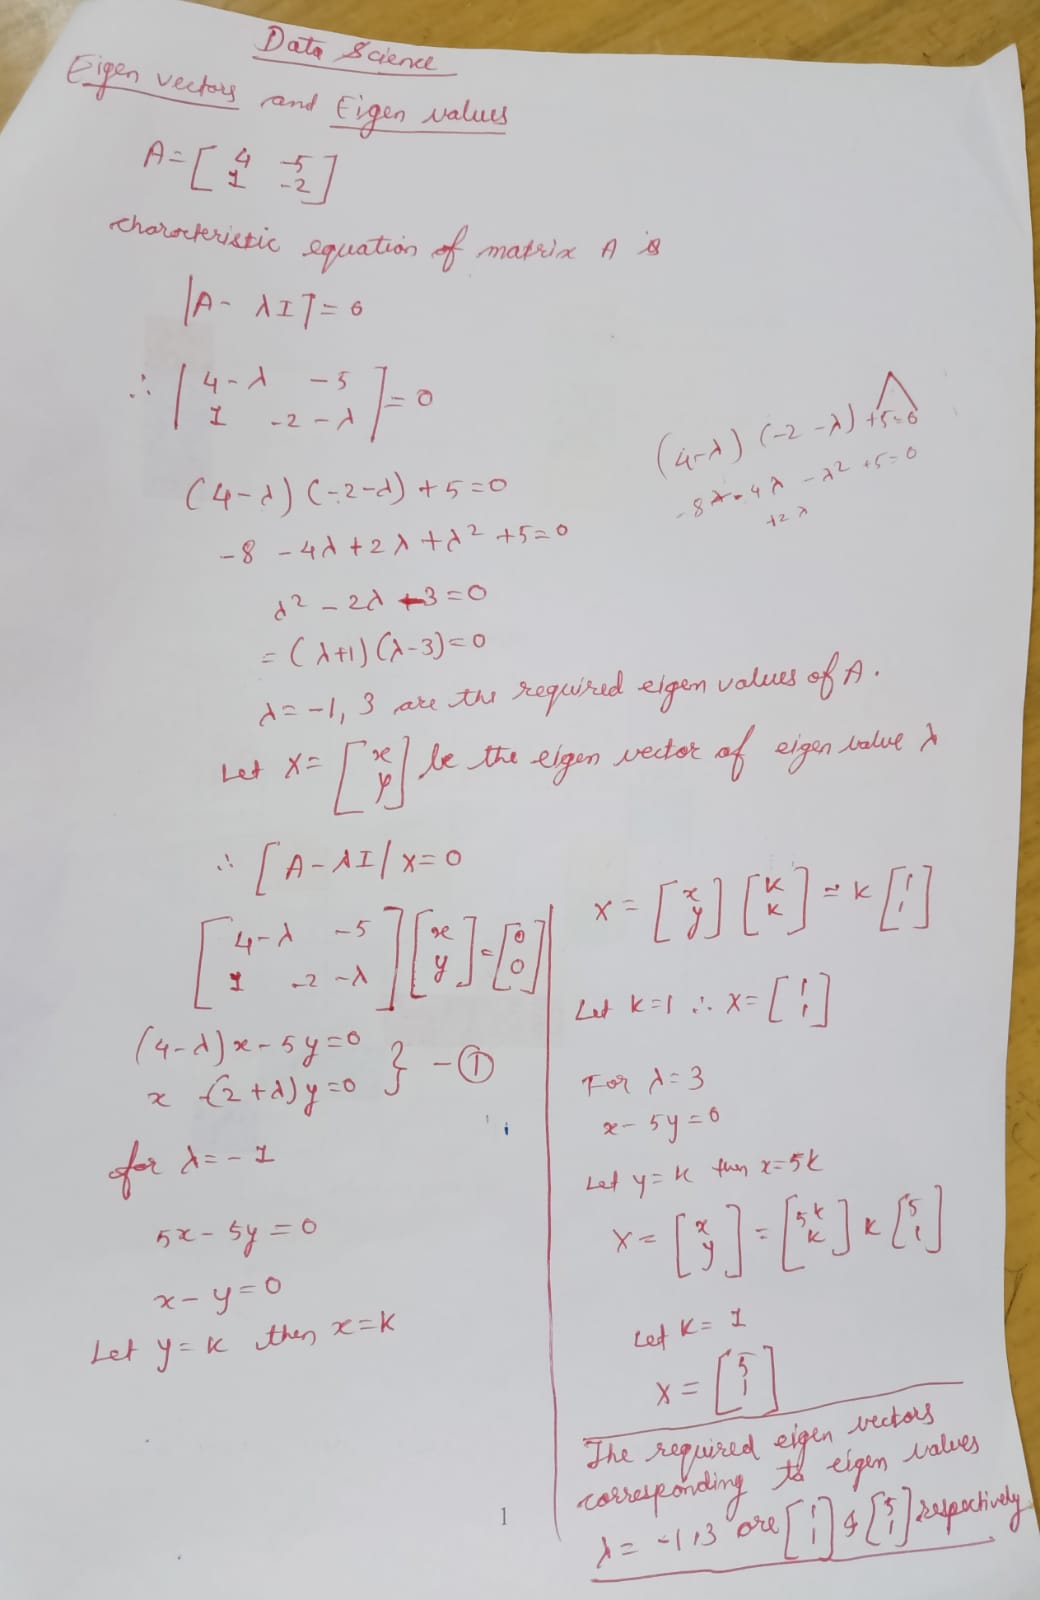 Data Science
Eigen vectors and Eigen values
A = [ 4 -5
1 -2 ]
characteristic equation of matrix A is
|A - λI] = 0
∴ | 4-λ -5
1 -2-λ ] = 0
(4-λ) (-2-λ) + 5 = 0
-8 - 4λ + 2λ + λ² + 5 = 0
λ² - 2λ - 3 = 0
= (λ+1) (λ-3) = 0
λ = -1, 3 are the required eigen values of A.
Let X = [ x
y ] be the eigen vector of eigen value λ
∴ [A - λI| X = 0
[ 4-λ -5
1 -2-λ ] [ x
y ] = [ 0
0 ]
(4-λ)x - 5y = 0
x -(2+λ)y = 0 } - ①
for λ = -1
5x - 5y = 0
x - y = 0
Let y = k then x = k
(4-λ) (-2-λ) +5=0
-8 - 4λ - λ² +5=0
+2λ
X = [ x
y ] [ k
k ] = k [ 1
1 ]
Let k=1 ∴ X = [ 1
1 ]
For λ = 3
x - 5y = 0
Let y = k then x = 5k
X = [ x
y ] = [ 5k
k ] k [ 5
1 ]
Let k = 1
X = [ 5
1 ]
The required eigen vectors
corresponding to eigen values
λ = -1, 3 are [ 1
1 ] & [ 5
1 ] respectively
1